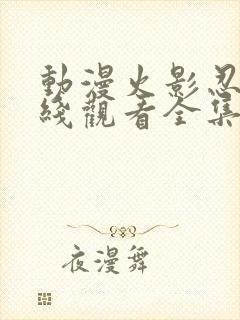 動漫火影忍
綫觀看全集
夜漫舞